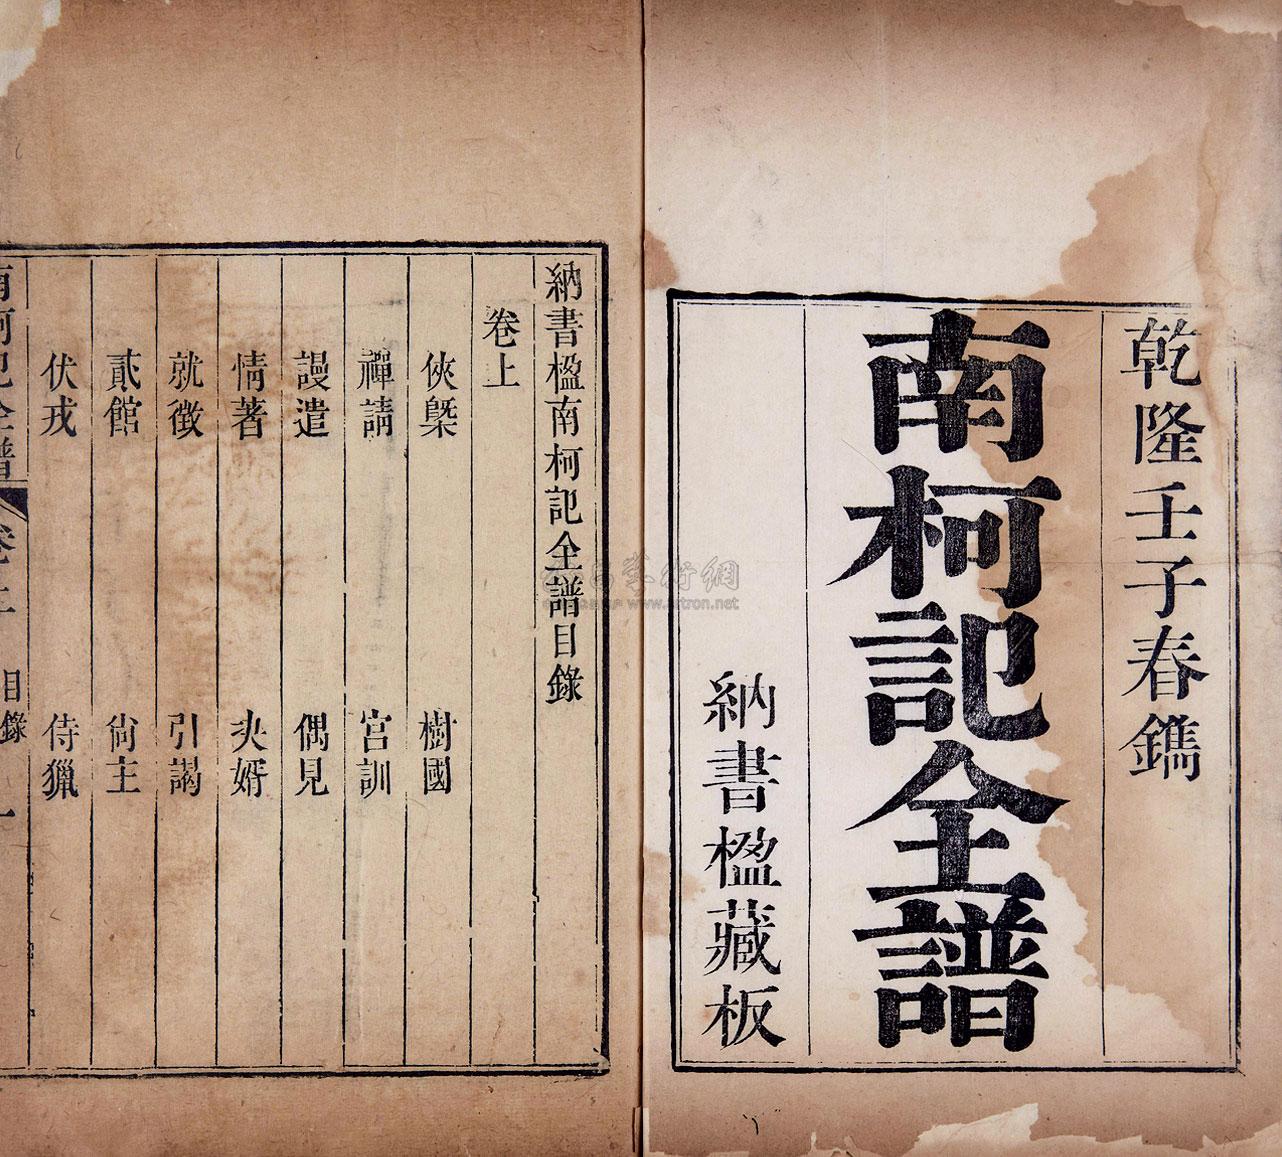 乾隆壬子春鐫
南柯記全譜
納書楹藏板
納書楹南柯記全譜目錄
卷上
俠槩 樹國
禪請 宮訓
謾遣 偶見
情著 决婿
就徵 引謁
貳館 尙主
伏戎 侍獵
南柯記全譜 卷上 目錄 一
www.artron.net